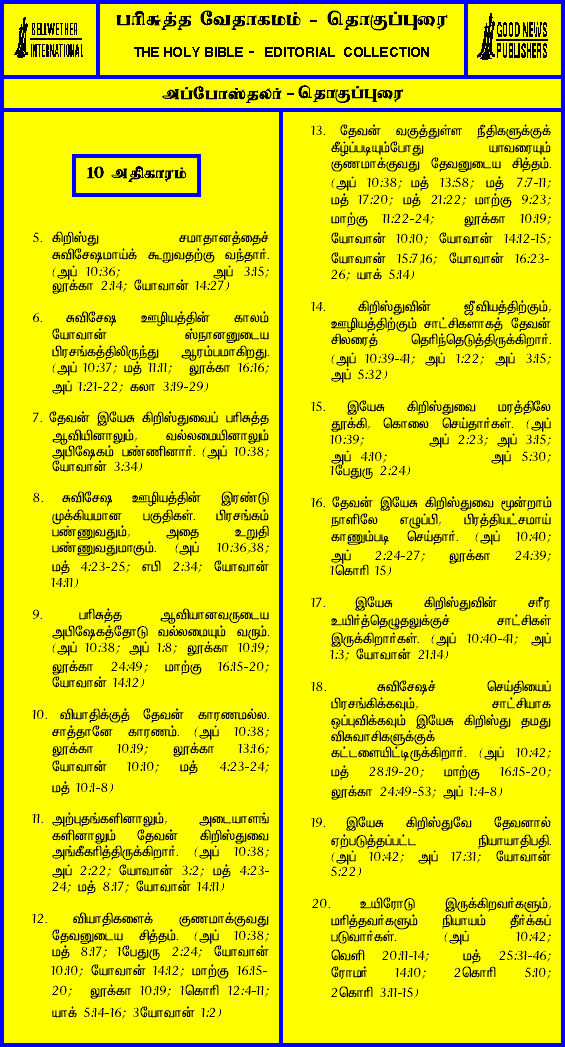 BELLWETHER
INTERNATIONAL
பரிசுத்த வேதாகமம் - தொகுப்புரை
THE HOLY BIBLE - EDITORIAL COLLECTION
GOOD NEWS
PUBLISHERS
அப்போஸ்தலர் - தொகுப்புரை
10 அதிகாரம்
5. கிறிஸ்து சமாதானத்தைச்
சுவிசேஷமாய்க் கூறுவதற்கு வந்தார்.
(அப் 10:36; அப் 3:15;
லூக்கா 2:14; யோவான் 14:27)
6. சுவிசேஷ ஊழியத்தின் காலம்
யோவான் ஸ்நானனுடைய
பிரசங்கத்திலிருந்து ஆரம்பமாகிறது.
(அப் 10:37; மத் 11:11; லூக்கா 16:16;
அப் 1:21-22; கலா 3:19-29)
7. தேவன் இயேசு கிறிஸ்துவைப் பரிசுத்த
ஆவியினாலும், வல்லமையினாலும்
அபிஷேகம் பண்ணினார். (அப் 10:38;
யோவான் 3:34)
8. சுவிசேஷ ஊழியத்தின் இரண்டு
முக்கியமான பகுதிகள். பிரசங்கம்
பண்ணுவதும், அதை உறுதி
பண்ணுவதுமாகும். (அப் 10:36,38;
மத் 4:23-25; எபி 2:34; யோவான்
14:11)
9. பரிசுத்த ஆவியானவருடைய
அபிஷேகத்தோடு வல்லமையும் வரும்.
(அப் 10:38; அப் 1:8; லூக்கா 10:19;
லூக்கா 24:49; மாற்கு 16:15-20;
யோவான் 14:12)
10. வியாதிக்குத் தேவன் காரணமல்ல.
சாத்தானே காரணம். (அப் 10:38;
லூக்கா 10:19; லூக்கா 13:16;
யோவான் 10:10; மத் 4:23-24;
மத் 10:1-8)
11. அற்புதங்களினாலும், அடையாளங்
களினாலும் தேவன் கிறிஸ்துவை
அங்கீகரித்திருக்கிறார். (அப் 10:38;
அப் 2:22; யோவான் 3:2; மத் 4:23-
24; மத் 8:17; யோவான் 14:11)
12. வியாதிகளைக் குணமாக்குவது
தேவனுடைய சித்தம். (அப் 10:38;
மத் 8:17; 1பேதுரு 2:24; யோவான்
10:10; யோவான் 14:12; மாற்கு 16:15-
20; லூக்கா 10:19; 1கொரி 12:4-11;
யாக் 5:14-16; 3யோவான் 1:2)
13. தேவன் வகுத்துள்ள நீதிகளுக்குக்
கீழ்ப்படியும்போது யாவரையும்
குணமாக்குவது தேவனுடைய சித்தம்.
(அப் 10:38; மத் 13:58; மத் 7:7-11;
மத் 17:20; மத் 21:22; மாற்கு 9:23;
மாற்கு 11:22-24; லூக்கா 10:19;
யோவான் 10:10; யோவான் 14:12-15;
யோவான் 15:7,16; யோவான் 16:23-
26; யாக் 5:14)
14. கிறிஸ்துவின் ஜீவியத்திற்கும்,
ஊழியத்திற்கும் சாட்சிகளாகத் தேவன்
சிலரைத் தெரிந்தெடுத்திருக்கிறார்.
(அப் 10:39-41; அப் 1:22; அப் 3:15;
அப் 5:32)
15. இயேசு கிறிஸ்துவை மரத்திலே
தூக்கி, கொலை செய்தார்கள். (அப்
10:39; அப் 2:23; அப் 3:15;
அப் 4:10; அப் 5:30;
1பேதுரு 2:24)
16. தேவன் இயேசு கிறிஸ்துவை மூன்றாம்
நாளிலே எழுப்பி, பிரத்தியட்சமாய்
காணும்படி செய்தார். (அப் 10:40;
அப் 2:24-27; லூக்கா 24:39;
1கொரி 15)
17. இயேசு கிறிஸ்துவின் சரீர
உயிர்த்தெழுதலுக்குச் சாட்சிகள்
இருக்கிறார்கள். (அப் 10:40-41; அப்
1:3; யோவான் 21:14)
18. சுவிசேஷச் செய்தியைப்
பிரசங்கிக்கவும், சாட்சியாக
ஒப்புவிக்கவும் இயேசு கிறிஸ்து தமது
விசுவாசிகளுக்குக்
கட்டளையிட்டிருக்கிறார். (அப் 10:42;
மத் 28:19-20; மாற்கு 16:15-20;
லூக்கா 24:49-53; அப் 1:4-8)
19. இயேசு கிறிஸ்துவே தேவனால்
ஏற்படுத்தப்பட்ட நியாயாதிபதி.
(அப் 10:42; அப் 17:31; யோவான்
5:22)
20. உயிரோடு இருக்கிறவர்களும்,
மரித்தவர்களும் நியாயம் தீர்க்கப்
படுவார்கள். (அப் 10:42;
வெளி 20:11-14; மத் 25:31-46;
ரோமர் 14:10; 2கொரி 5:10;
2கொரி 3:11-15)